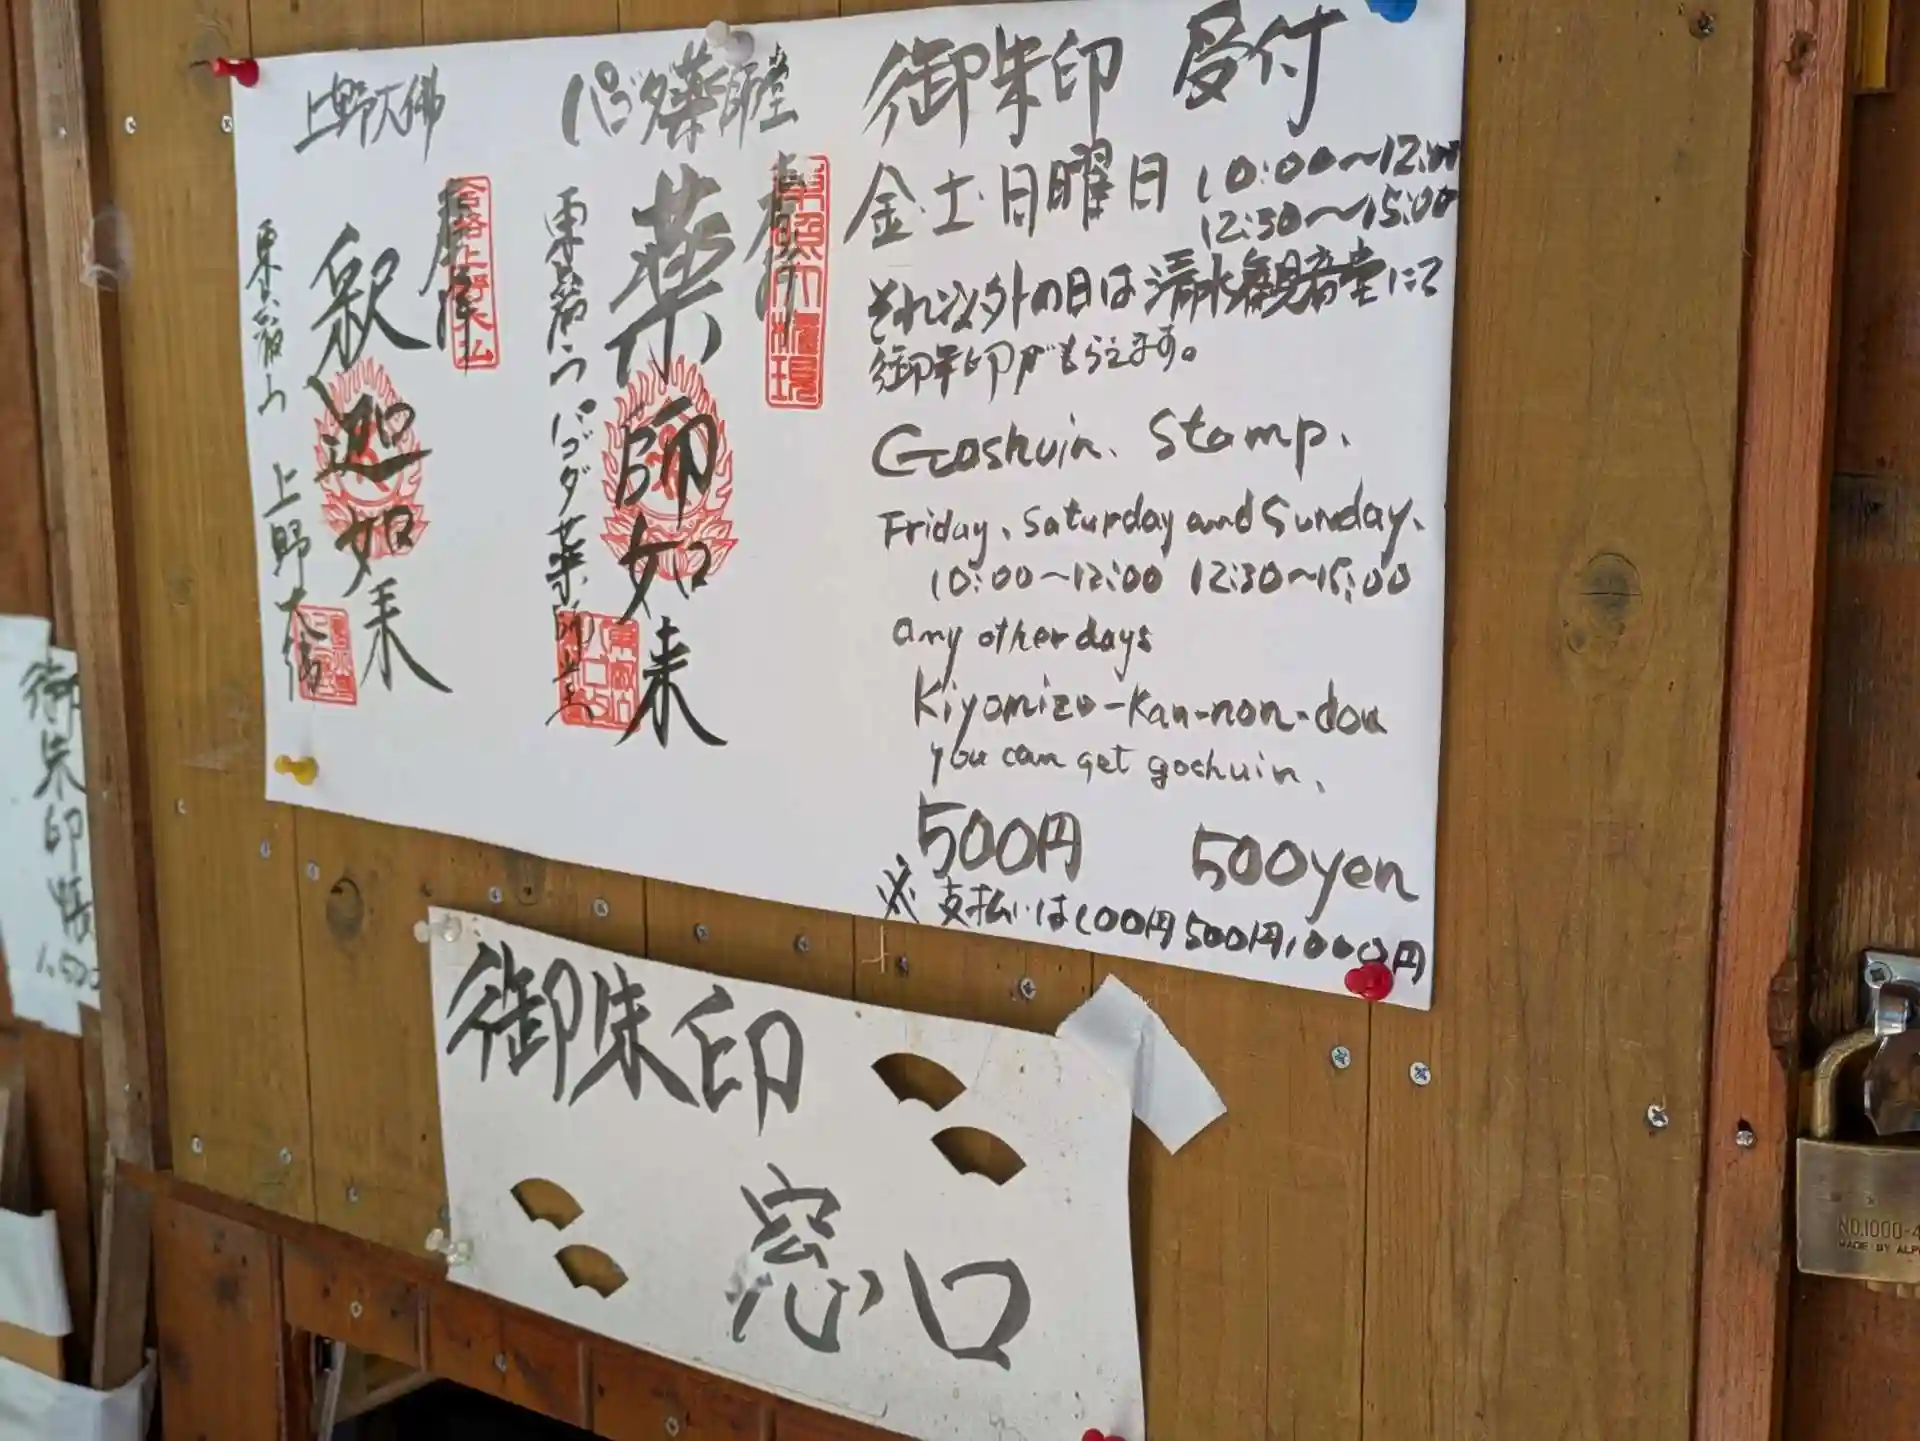 御朱印 受付
金・土・日曜日 10:00〜12:00
12:30〜15:00
それ以外の日は清水観音堂にて
御朱印がもらえます。
Goshuin. Stamp.
Friday, Saturday and Sunday.
10:00〜12:00 12:30〜15:00
any other days
Kiyomizu-Kan-non-dou
you can get goshuin.
500円 500yen
※支払いは100円500円1000円
パゴダ薬師堂
奉拝
薬師如来
東叡山 パゴダ薬師堂
上野大佛
奉拝
合格上野大仏
釈迦如来
東叡山 上野大佛
御朱印
窓口
御朱印帳
NO.1000-4
MADE BY ALP